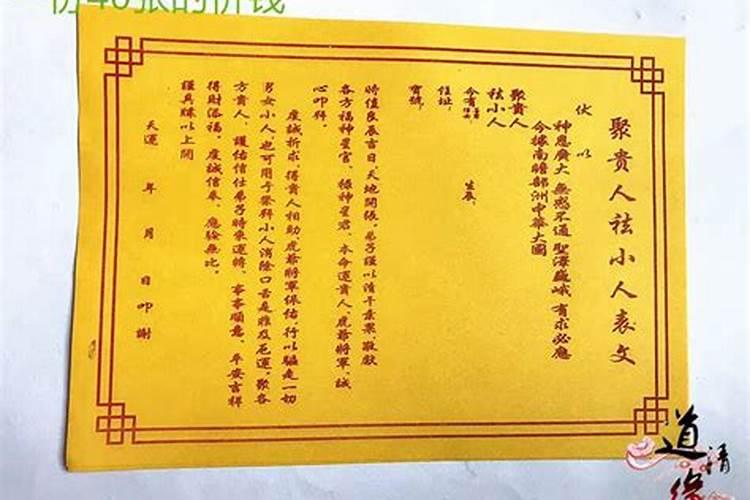 份40张的价钱
聚貴人祛小人表文
伏以
神恩廣大 無感不通 聖澤巍峨 有求必應
今據南瞻部洲中華大國
聚貴人
祛小人
今有
住址
生辰
寶號
時值良辰吉日，天地開張，弟子謹以清干素菓 敬獻
各方福神星官、祿神星君、本命運貴人、虎爺將軍，誠
心叩拜。
虔誠祈求，得貴人相助虎爺將軍保佑 行以驅走一切
男女小人，也可用于祭拜小人消除口舌是非及厄運，聚各
方貴人，護佑信仕弟子時來運轉、事事順意、平安吉祥
得財添福。虔誠信奉、應驗無比。
謹具牒以上聞
天運 年 月 日叩謝
道
清
缘